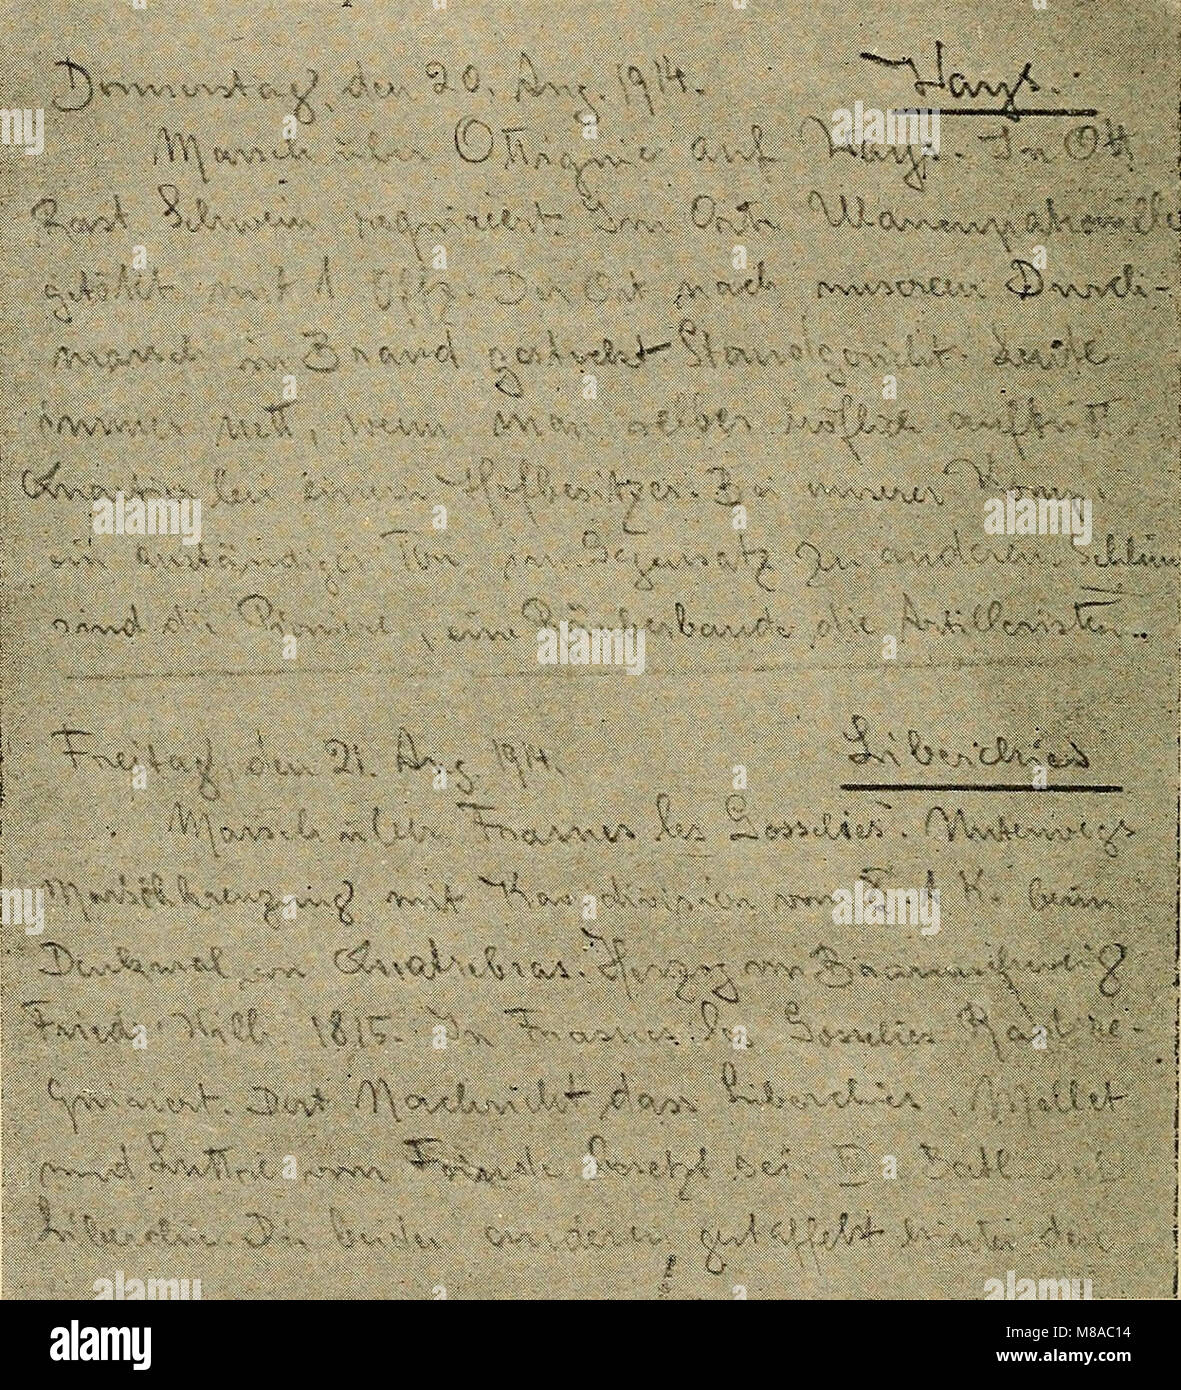 Donnerstag, den 20. Aug. 1914. Ways.
Marsch über Ottignie auf Ways. In Ott.
Rast Schwein requiriert. Im Orte Ulanenpatrouille
getötet mit 1 Offz. Der Ort nach unserem Durch-
marsch in Brand gesteckt Standgericht. Leute
immer nett, wenn man selber höflich auftritt.
Quartier bei einem Hofbesitzer. Bei unserer Komp.
ein anständiger Ton im Gegensatz zu anderen Schlimm
sind die Pioniere, eine Räuberbande die Artilleristen.
Freitag, den 21. Aug. 1914. Liberchies
Marsch über Frasnes les Gosselies. Unterwegs
Marschkreuzung mit Kav. division von 1 K. beim
Denkmal in Quatrebras. Herzog v. Braunschweig
Fried. Wilh. 1815. In Frasnes les Gosselies Rast re-
quiriert. Dort Nachricht dass Liberchies, Mellet
und Luttre vom Feinde besetzt sei. II Batl. auf
Liberchies. Die beiden anderen gestaffelt hinter dem
alamy
Image ID: M8AC14
www.alamy.com